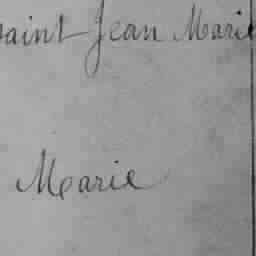 saint Jean Marie
Marie